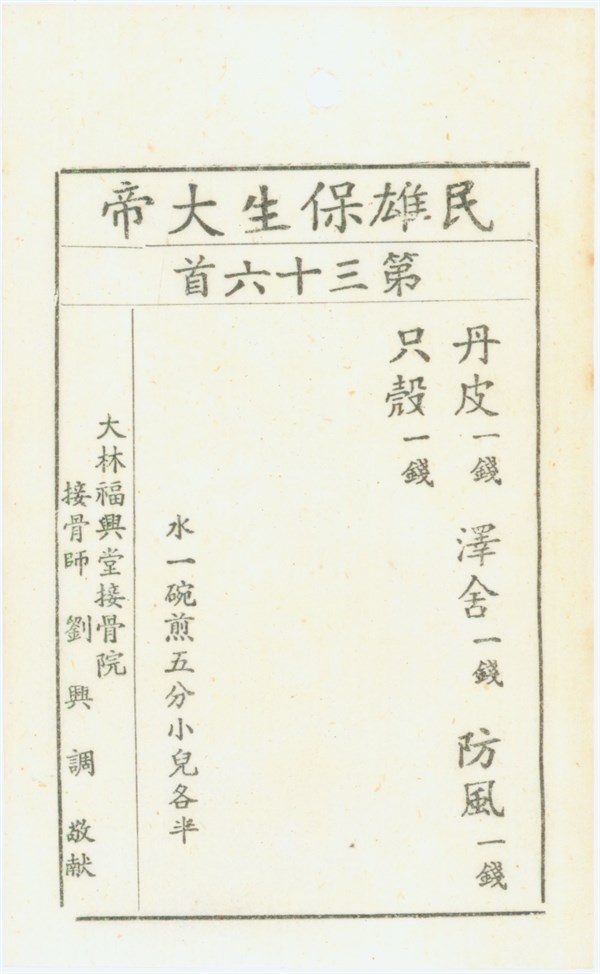 民雄保生大帝
第三十六首
丹皮一錢 澤舍一錢 防風一錢
只殼一錢
水一碗煎五分小兒各半
大林福興堂接骨院
接骨師 劉興調 敬献